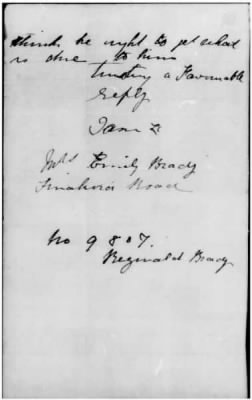 think he ought to get what
is due to him
trusting a Favourable
reply
I am &
Mrs Emily Brady
Road
No 9807.
Reginald Brady